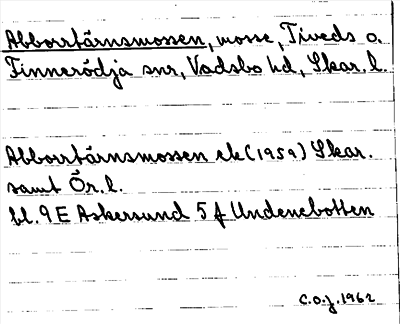 Abborrtärnsmossen, mosse, Tiveds o.
Finnerödja snr, Vadsbo hd, Skar. l.
Abborrtärnsmossen ek (1959) Skar.
samt Ör. l.
bl. 9 E Askersund 5 f Undenebotten
C.O.J. 1962